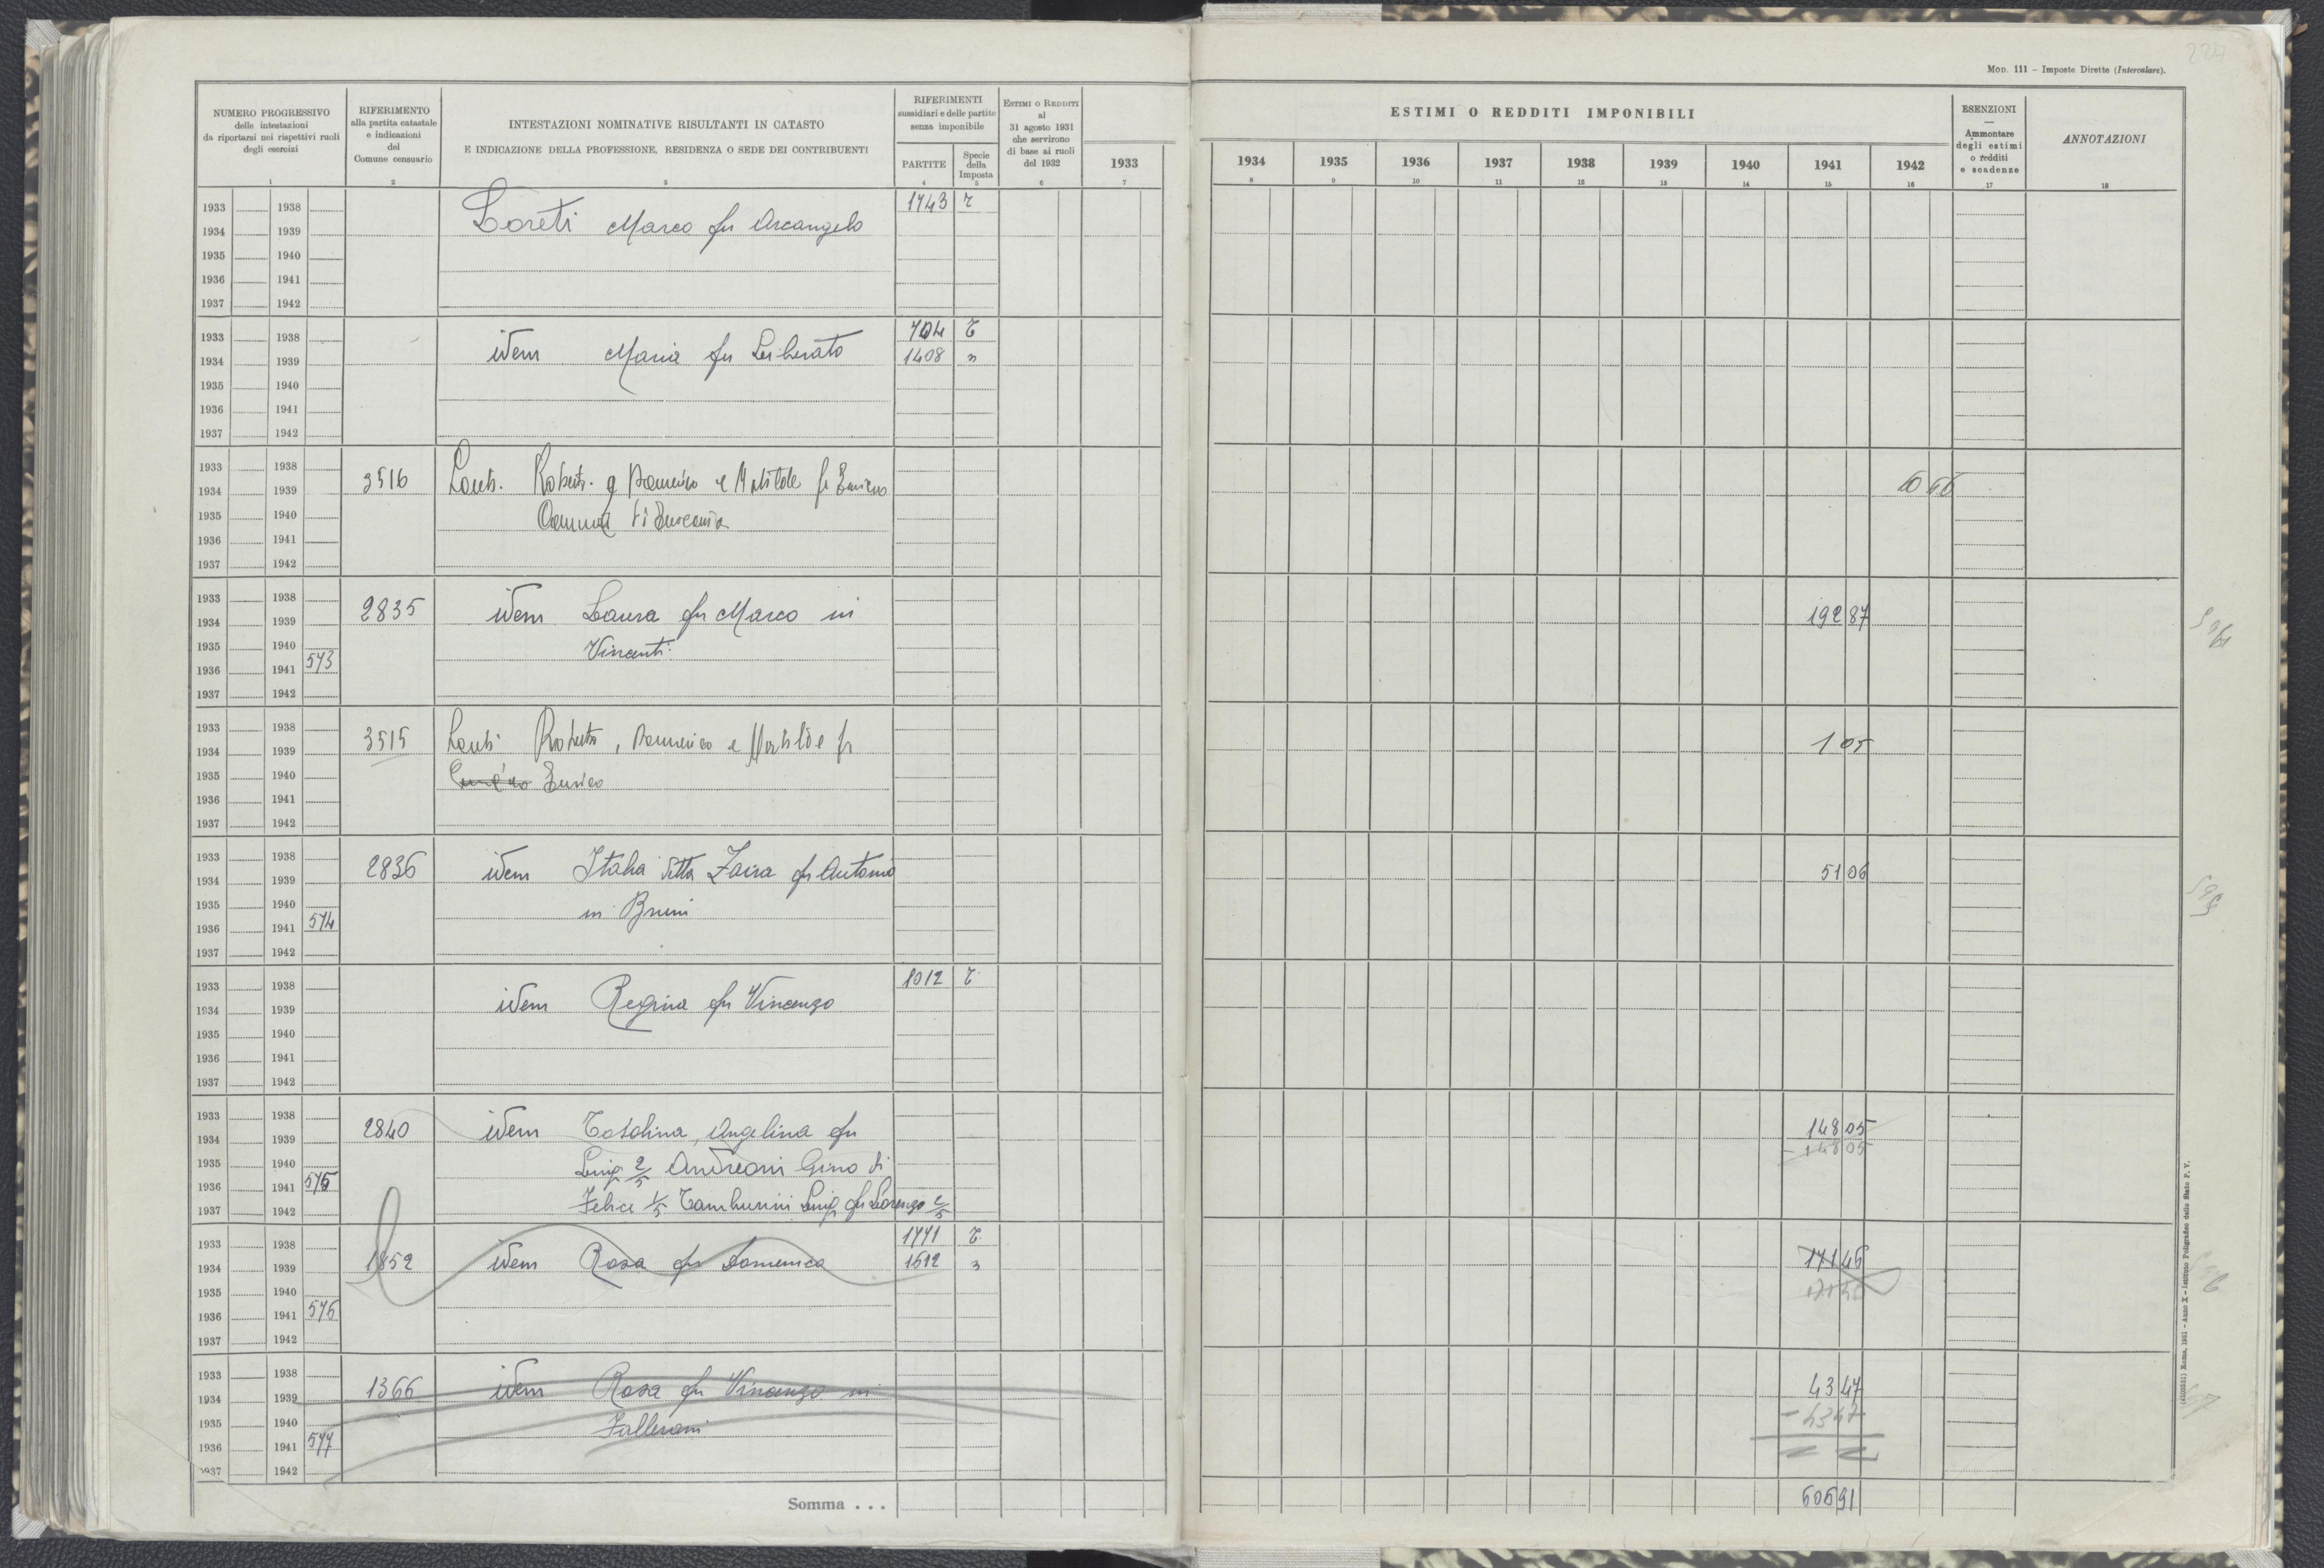 224
MOD. 111 – Imposte Dirette (Intercalare).
NUMERO PROGRESSIVO
delle intestazioni
da riportarsi nei rispettivi ruoli
degli esercizi
1
RIFERIMENTO
alla partita catastale
e indicazioni
del
Comune censuario
2
INTESTAZIONI NOMINATIVE RISULTANTI IN CATASTO
E INDICAZIONE DELLA PROFESSIONE, RESIDENZA O SEDE DEI CONTRIBUENTI
3
RIFERIMENTI
sussidiari e delle partite
senza imponibile
PARTITE
4
Specie
della
Imposta
5
ESTIMI O REDDITI
al
31 agosto 1931
che servirono
di base ai ruoli
del 1932
6
1933
7
ESTIMI O REDDITI IMPONIBILI
1934 1935 1936 1937 1938 1939 1940 1941 1942
8 9 10 11 12 13 14 15 16
ESENZIONI
—
Ammontare
degli estimi
o redditi
e scadenze
17
ANNOTAZIONI
18
1933 1938 1743 r
1934 1939 Loreti Marco fu Arcangelo
1935 1940
1936 1941
1937 1942
1933 1938 704 T
1934 1939 idem Maria fu Liberato 1408 "
1935 1940
1936 1941
1937 1942
1933 1938
1934 1939 3516 Matilde fu
1935 1940
1936 1941
1937 1942
1933 1938
1934 1939 2835 idem Laura fu Marco in 192 87
1935 1940 Vincenti
1936 1941 573
1937 1942
1933 1938
1934 1939 3515 Matilde fu 1 05
1935 1940 Enrico
1936 1941
1937 1942
1933 1938
1934 1939 2836 idem Italia detta Zaira fu Antonio 51 06
1935 1940 in Bruni
1936 1941 574
1937 1942
1933 1938 1012 T
1934 1939 idem Regina fu Vincenzo
1935 1940
1936 1941
1937 1942
1933 1938
1934 1939 2840 idem Tosolina, Angelina fu 148 05
1935 1940 Luigi 2/5 Andreani Gino di – 148 05
1936 1941 575 Felice 1/5 Tamburini Luigi fu Lorenzo 2/5
1937 1942
1933 1938 1771 T
1934 1939 1852 idem Rosa fu Domenico 1612 " 171 46
1935 1940 171 46
1936 1941 576
1937 1942
1933 1938
1934 1939 1366 idem Rosa fu Vincenzo in 43 47
1935 1940 Falleroni – 43 47
1936 1941 577
1937 1942
Somma . . . 606 91
(4100551) Roma, 1931 – Anno X – Istituto Poligrafico dello Stato P. V.